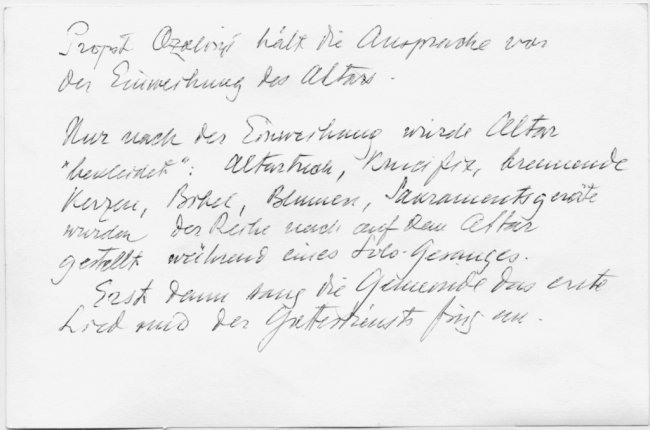 Propst Ozoliņš hält die Ansprache vor
der Einweihung des Altars.
Nur nach der Einweihung wurde Altar
"bekleidet": Altartuch, Kruzifix, brennende
Kerzen, Bibel, Blumen, Sakramentsgeräte
wurden der Reihe nach auf den Altar
gestellt während eines Solo-Gesanges.
Erst dann sang die Gemeinde das erste
Lied und der Gottesdienst fing an.